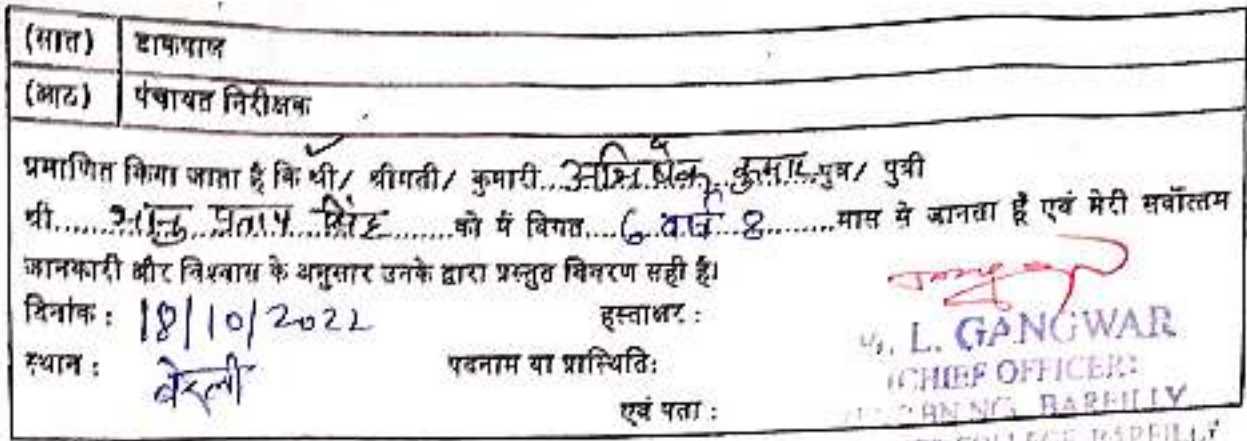 (सात) डाकपाल
(आठ) पंचायत निरीक्षक
प्रमाणित किया जाता है कि श्री/ श्रीमती/ कुमारी...अभिषेक कुमार...पुत्र/ पुत्री
श्री.........भानु प्रताप सिंह.........को मैं विगत....6 वर्ष 8.........मास से जानता हूँ एवं मेरी सर्वोत्तम
जानकारी और विश्वास के अनुसार उनके द्वारा प्रस्तुत विवरण सही है।
दिनांक : 18/10/2022 हस्ताक्षर :
L. GANGWAR
स्थान : बरेली पदनाम या प्रास्थिति:
CHIEF OFFICER
एवं पता :
BAREILLY
COLLEGE BAREILLY